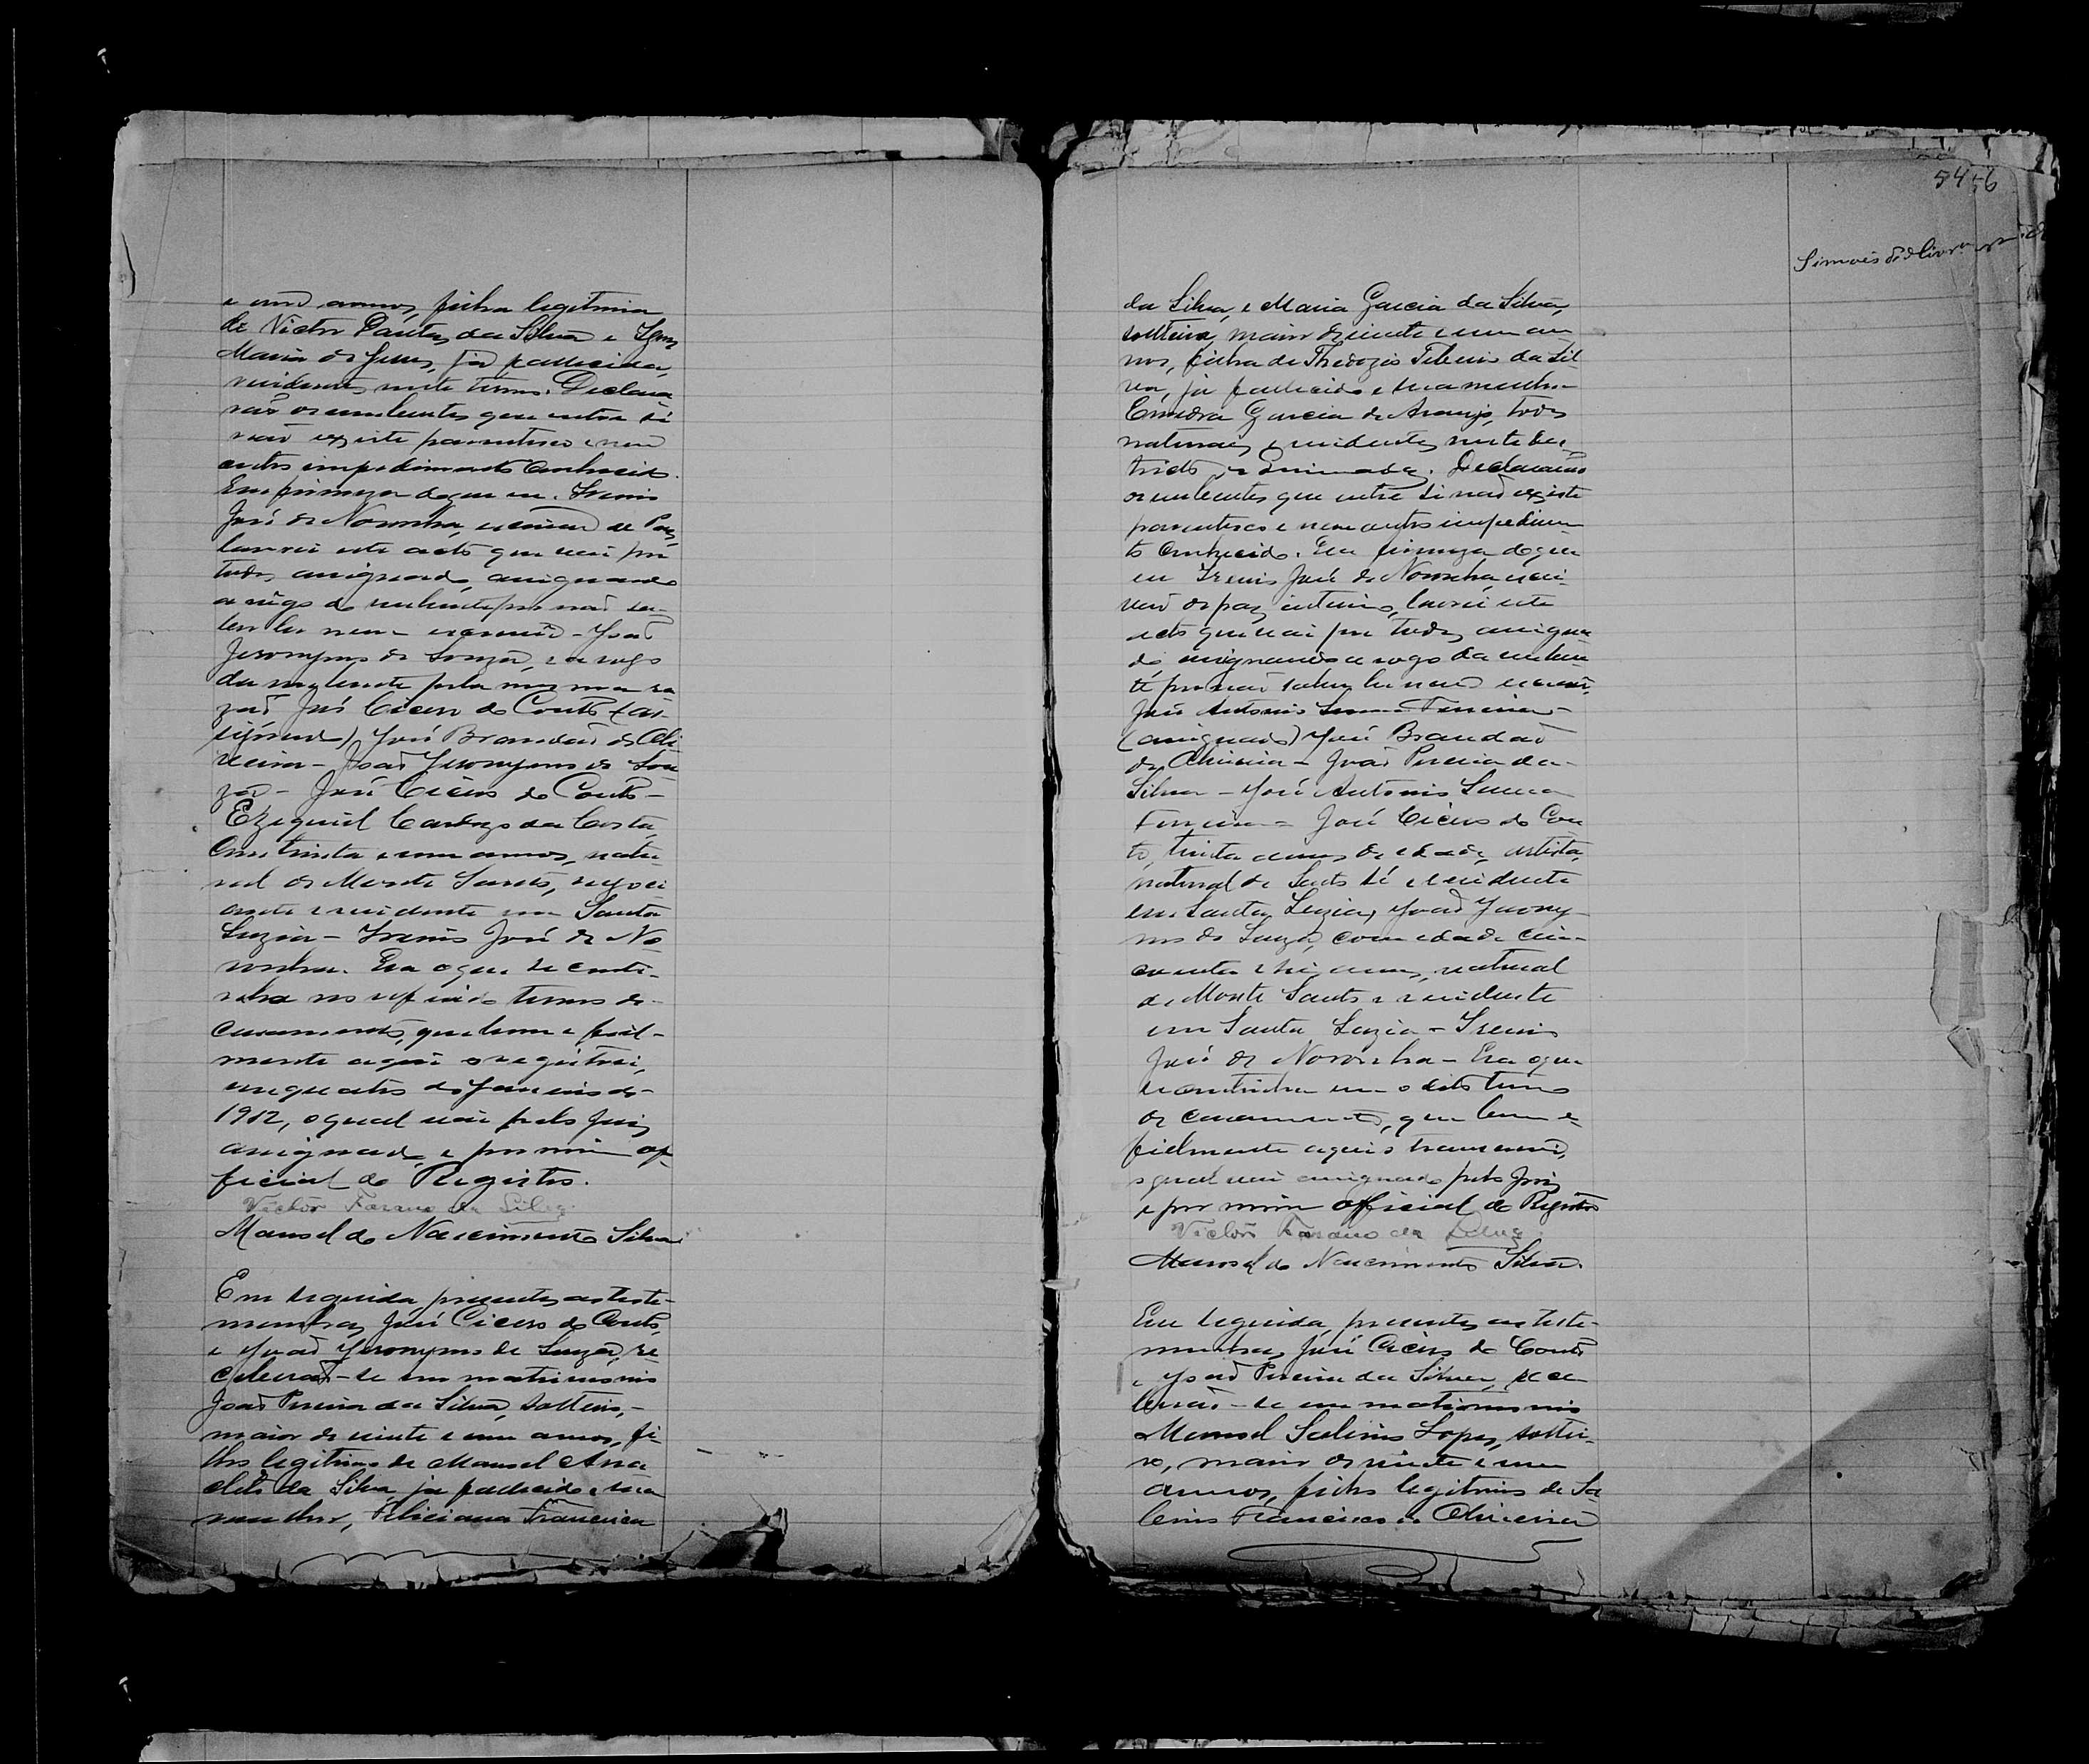 e um annos, filha legitima
de Victor Dantas da Silva e Ignez
Maria de Jesus, já fallecida,
residentes neste termo. Declara
rão os nubentes que entre si
não existe parentesco e nem
outro impedimento conhecido.
Em firmeza do que eu. Irenio
José de Noronha, escrivão de Paz,
lavrei este acto que vai por
todos assignado, assignando
a rogo do nubente por não sa-
ber ler nem escrever - João
Jeronymo de Souza, e a rogo
da nubente pela mesma ra
zão José Cicero do Couto (as-
signados) José Brandão de Oli
veira - João Jeronymo de Sou
za - José Cicero do Couto -
Ezequiel Cardozo da Costa,
com trinta e um annos, natu-
ral de Monte Santo, negoci
ante e residente em Santa
Luzia - Irenio José de No
ronha. Era o que se conti-
nha no referido termo de
casamento, que bem e fiel-
mente aqui o registrei,
em quatro de Janeiro de
1912, o qual vai pelo Juiz
assignado e por mim of
ficial do Registro.
Victor da Silva
Manoel do Nascimento Silva
Em seguida presentes as teste-
munhas José Cicero do Couto,
e João Jeronymo de Souza, re
ceberão-se em matrimonio
João Pereira da Silva, solteiro,-
maior de vinte e um annos, fi-
lho legitimo de Manoel Ana
cleto da Silva, já fallecido e sua
mulher, Feliciana Francisca
5456
Simões
da Silva, e Maria Garcia da Silva,
solteira, maior de vinte e um an-
nos, filha de Theodozio Tiberio da Sil-
va, já fallecido e sua mulher
Garcia de Araujo, todos
naturaes e residentes neste des-
tricto Declararão
os nubentes que entre si não existe
parentesco e nem outro impedimen
to conhecido. Em firmeza do que
eu Irenio José de Noronha, escri-
vão de paz interino, lavrei este
acto que vai por todos assigna
do assignando a rogo da nuben
te por não saber ler nem escrever,
José Antonio Ferreira -
(assignados) José Brandão
de Oliveira - João Pereira da
Silva - José Antonio
Ferreira - José Cicero do Cou
to, trinta annos de idade, artista,
natural de Santo Sé e residente
em Santa Luzia, João Jerony-
mo de Souza, com idade cin-
coenta e seis annos, natural
de Monte Santo e residente
em Santa Luzia - Irenio
José de Noronha - Era o que
se continha em o dito termo
de casamento, que bem e
fielmente aqui o transcrevi,
o qual vai assignado pelo Juiz
e por mim official do Registro
Victor da
Manoel do Nascimento Silva.
Em seguida, presentes as teste-
munhas, José Cicero do Couto
e João Pereira da Silva, rece
berão-se em matrimonio
Manoel Salino Lopes, soltei-
ro, maior de vinte e um
annos, filho legitimo de Sa
lino Francisco de Oliveira